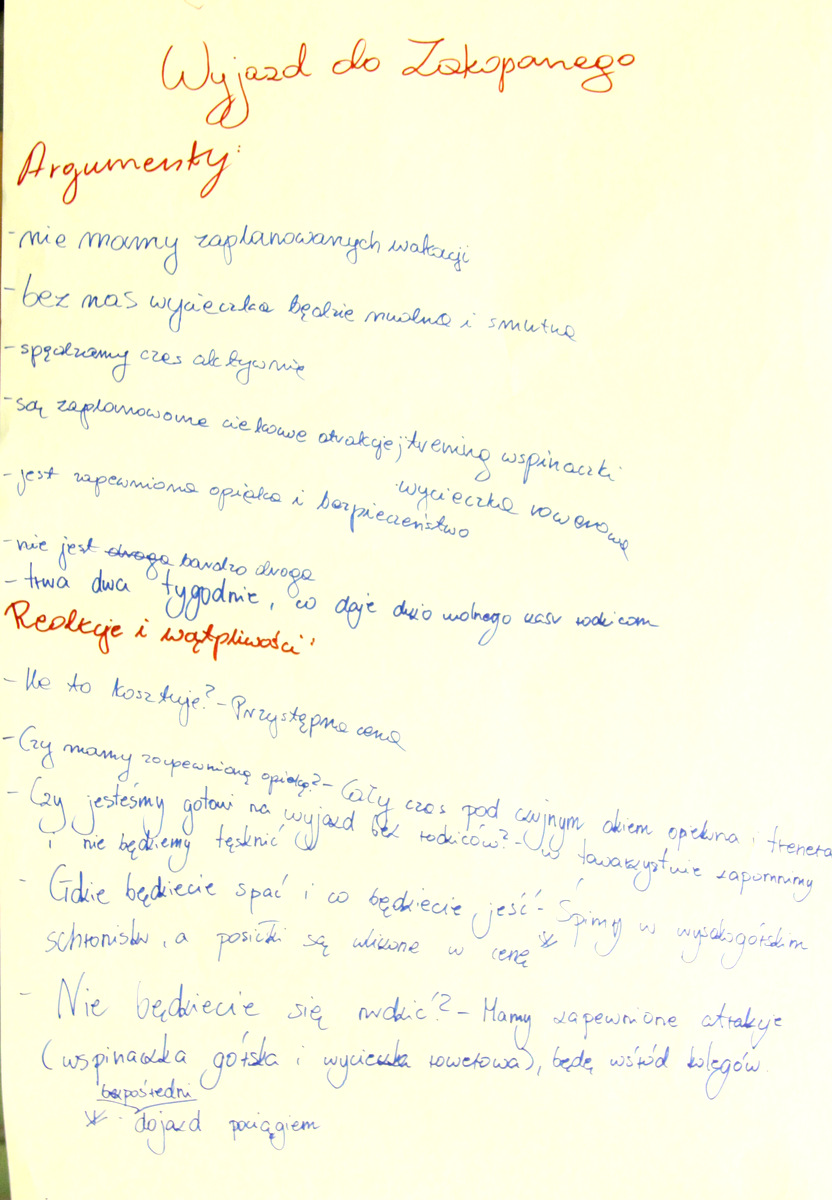 Wyjazd do Zakopanego
Argumenty:
- nie mamy zaplanowanych wakacji
- bez nas wycieczka będzie nudna i smutna
- spędzamy czas aktywnie
- są zaplanowane ciekawe atrakcje; trening wspinaczki
wycieczka rowerowa
- jest zapewniona opieka i bezpieczeństwo
- nie jest droga bardzo droga
- trwa dwa tygodnie, co daje dużo wolnego czasu rodzicom
Reakcje i wątpliwości:
- Ile to kosztuje? - Przystępna cena
- Czy mamy zapewnioną opiekę? - Cały czas pod czujnym okiem opiekuna i trenera
- Czy jesteśmy gotowi na wyjazd bez rodziców? - w towarzystwie zapomnimy
i nie będziemy tęsknić
- Gdzie będziecie spać i co będziecie jeść - Śpimy w wysokogórskim
schronisku, a posiłki są wliczone w cenę *
- Nie będziecie się nudzić? - Mamy zapewnione atrakcje
(wspinaczka górska i wycieczka rowerowa), będę wśród kolegów.
bezpośredni
* dojazd pociągiem